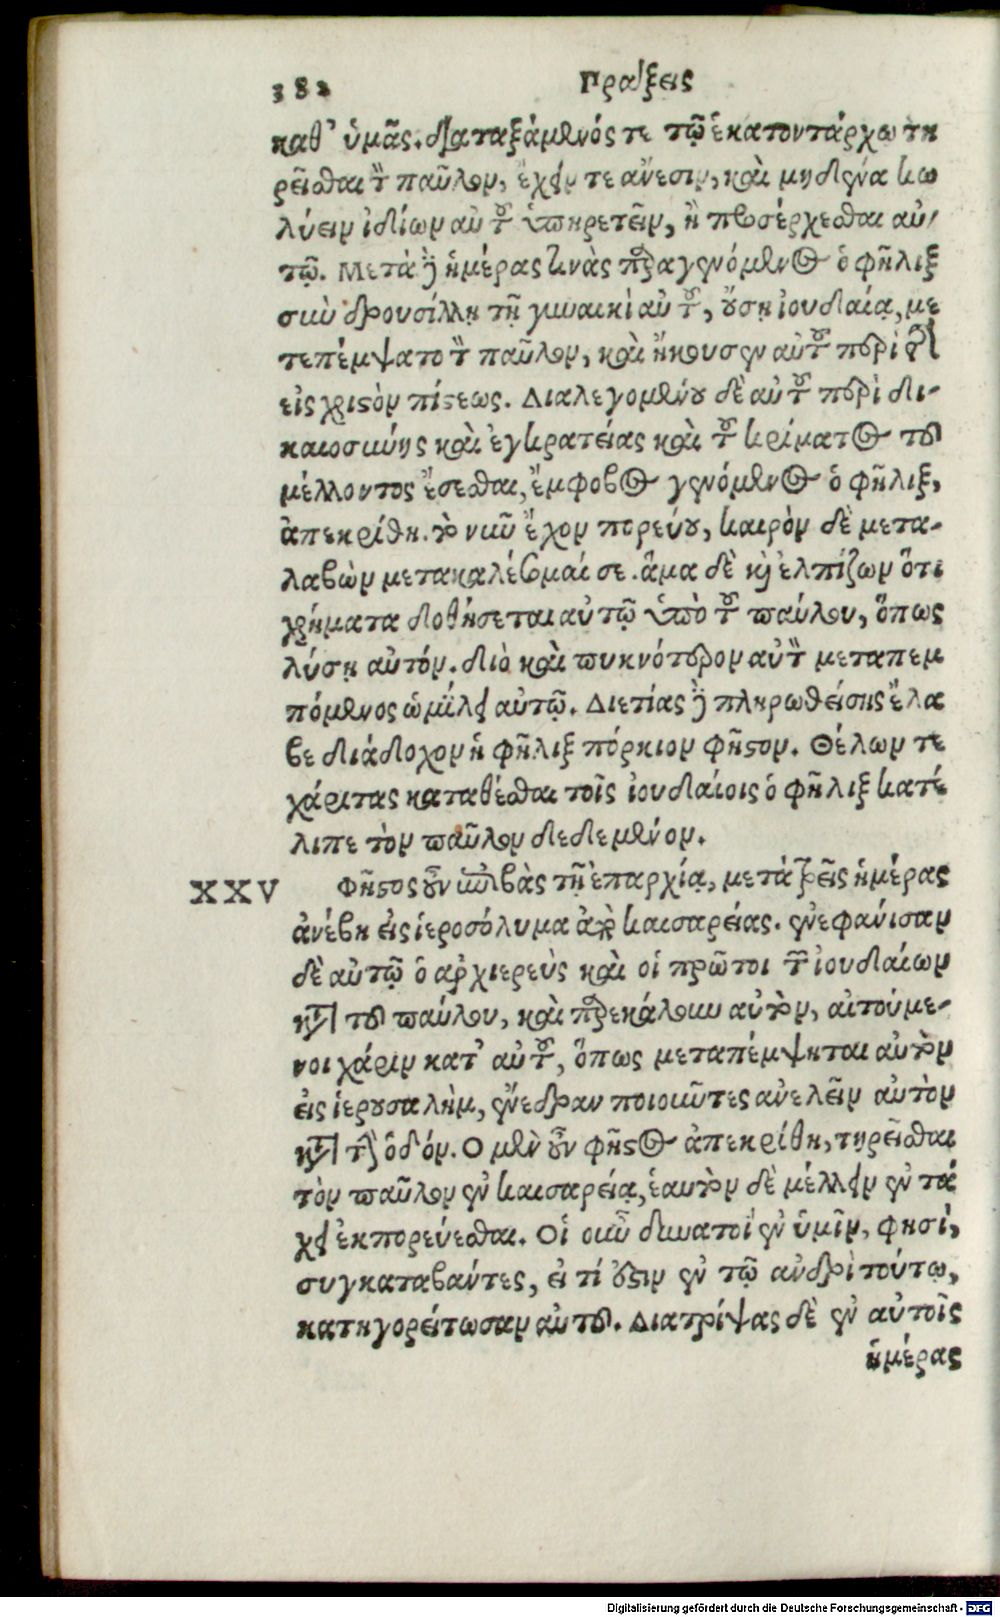 382 Πράξεις
καθ' ὑμᾶς. διαταξάμενός τε τῷ ἑκατοντάρχῳ τη
ρεῖσθαι τὸν παῦλον, ἔχειν τε ἄνεσιν, καὶ μηδένα κω
λύειν ἰδίων αὐτοῦ ὑπηρετεῖν, ἢ προσέρχεσθαι αὐ
τῷ. Μετὰ δὲ ἡμέρας τινὰς παραγενόμενος ὁ φῆλιξ
σὺν δρουσίλλῃ τῇ γυναικὶ αὐτοῦ, οὔσῃ ἰουδαίᾳ, με
τεπέμψατο τὸν παῦλον, καὶ ἤκουσεν αὐτοῦ περὶ τῆς
εἰς χριστὸν πίστεως. Διαλεγομένου δὲ αὐτοῦ περὶ δι-
καιοσύνης καὶ ἐγκρατείας καὶ τοῦ κρίματος τοῦ
μέλλοντος ἔσεσθαι, ἔμφοβος γενόμενος ὁ φῆλιξ,
ἀπεκρίθη. τὸ νῦν ἔχον πορεύου, καιρὸν δὲ μετα-
λαβὼν μετακαλέσομαί σε. ἅμα δὲ καὶ ἐλπίζων ὅτι
χρήματα δοθήσεται αὐτῷ ὑπὸ τοῦ παύλου, ὅπως
λύσῃ αὐτόν. διὸ καὶ πυκνότερον αὐτὸν μεταπεμ
πόμενος ὡμίλει αὐτῷ. Διετίας δὲ πληρωθείσης ἔλα
βε διάδοχον ἡ φῆλιξ πόρκιον φῆστον. Θέλων τε
χάριτας καταθέσθαι τοῖς ἰουδαίοις ὁ φῆλιξ κατέ
λιπε τὸν παῦλον δεδεμένον.
XXV Φῆστος οὖν ἐπιβὰς τῇ ἐπαρχίᾳ, μετὰ τρεῖς ἡμέρας
ἀνέβη εἰς ἱεροσόλυμα ἀπὸ καισαρείας. ἐνεφάνισαν
δὲ αὐτῷ ὁ ἀρχιερεὺς καὶ οἱ πρῶτοι τῶν ἰουδαίων
κατὰ τοῦ παύλου, καὶ παρεκάλουν αὐτὸν, αἰτούμε-
νοι χάριν κατ' αὐτοῦ, ὅπως μεταπέμψηται αὐτὸν
εἰς ἱερουσαλὴμ, ἐνέδραν ποιοῦντες ἀνελεῖν αὐτὸν
κατὰ τὴν ὁδόν. Ο μὲν οὖν φῆστος ἀπεκρίθη, τηρεῖσθαι
τὸν παῦλον ἐν καισαρείᾳ, ἑαυτὸν δὲ μέλλειν ἐν τά
χει ἐκπορεύεσθαι. Οἱ οὖν δυνατοὶ ἐν ὑμῖν, φησί,
συγκαταβάντες, εἰ τί ἐστιν ἐν τῷ ἀνδρὶ τούτῳ,
κατηγορείτωσαν αὐτοῦ. Διατρίψας δὲ ἐν αὐτοῖς
ἡμέρας
Digitalisierung gefördert durch die Deutsche Forschungsgemeinschaft - DFG